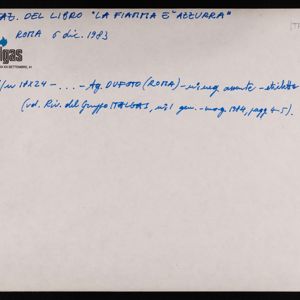 AZ. DEL LIBRO "LA FIAMMA È AZZURRA"
ROMA 6 dic. 1983
lgas
XX SETTEMBRE, 41
18x24 - ... - Ag. DUFOTO (ROMA) - assente - etichetta
(vd. Riv. del Gruppo ITALGAS, n° 1 gen. - mag. 1984, pagg. 4-5).